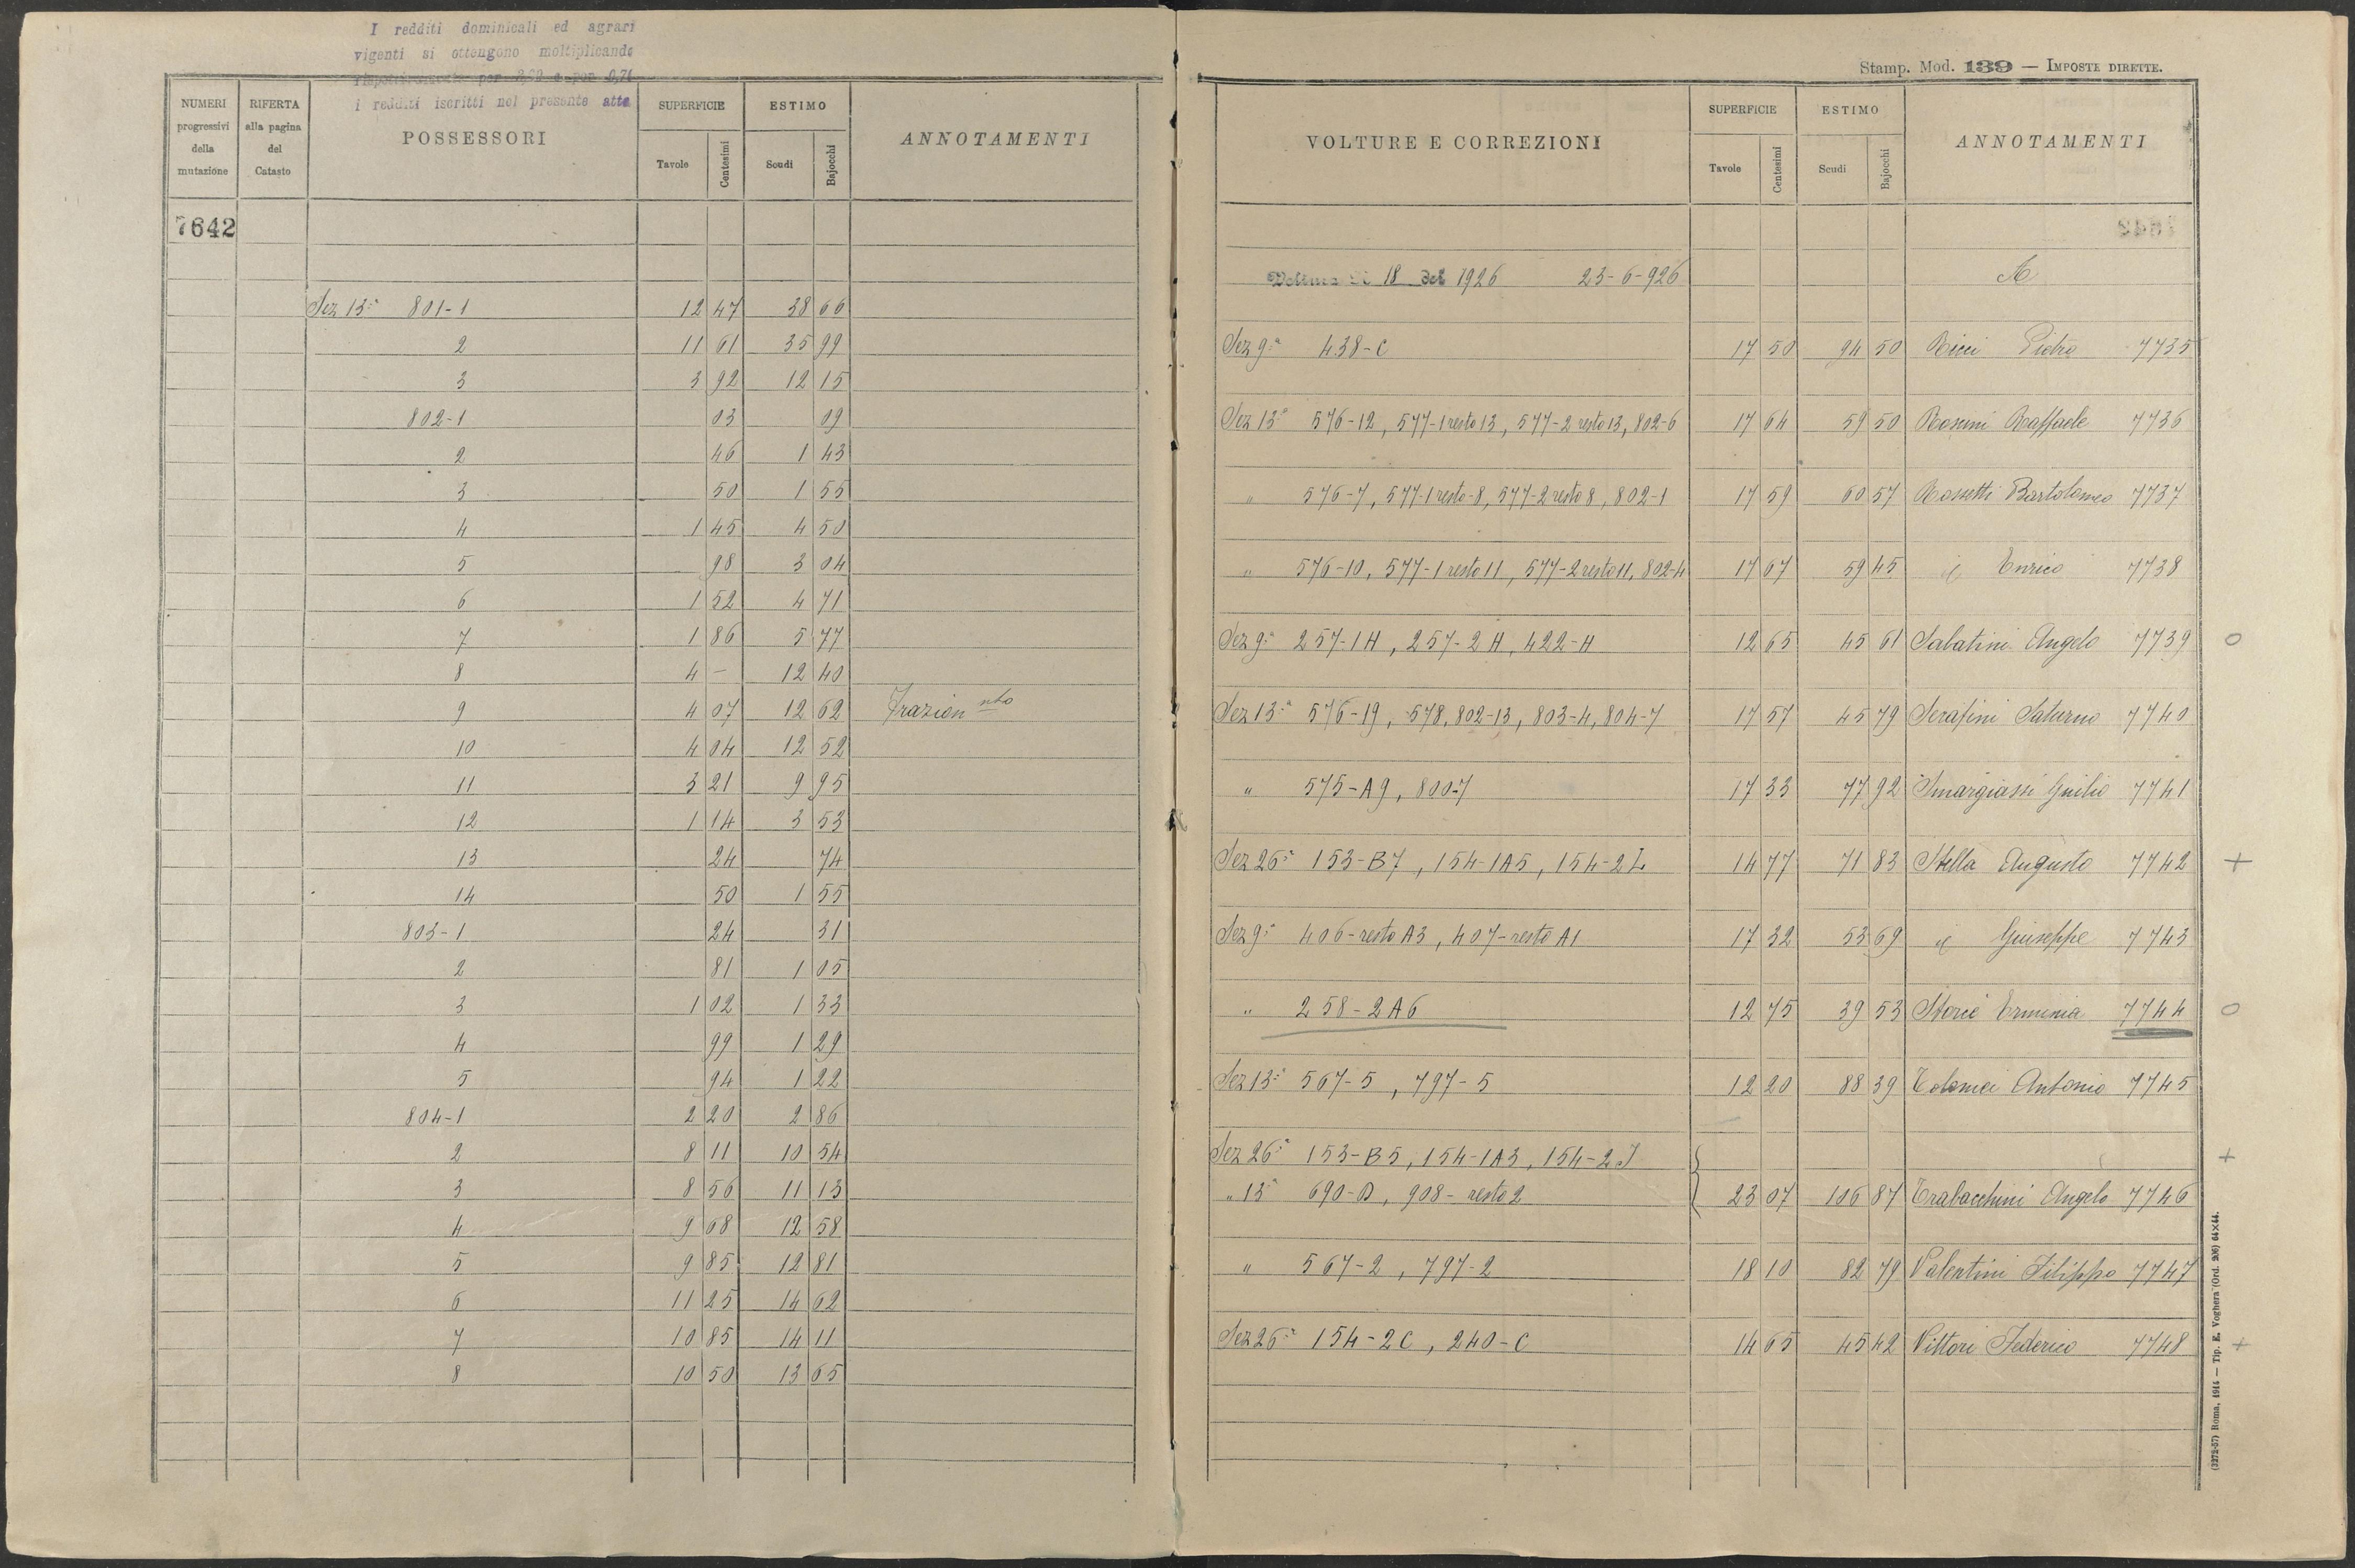 I redditi dominicali ed agrari
vigenti si ottengono moltiplicando
rispettivamente per e per 0,71
i redditi iscritti nel presente atto
NUMERI progressivi della mutazione | RIFERTA alla pagina del Catasto | POSSESSORI | SUPERFICIE Tavole Centesimi | ESTIMO Scudi Bajocchi | ANNOTAMENTI
7642
Sez 13ª 801-1 12 47 38 66
2 11 61 35 99
3 3 92 12 15
802-1 03 09
2 46 1 43
3 50 1 55
4 1 45 4 50
5 98 3 04
6 1 52 4 71
7 1 86 5 77
8 4 - 12 40
9 4 07 12 62 Frazionnto
10 4 04 12 52
11 3 21 9 95
12 1 14 3 53
13 24 74
14 50 1 55
803-1 24 31
2 81 1 05
3 1 02 1 33
4 99 1 29
5 94 1 22
804-1 2 20 2 86
2 8 11 10 54
3 8 56 11 13
4 9 68 12 58
5 9 85 12 81
6 11 25 14 62
7 10 85 14 11
8 10 50 13 65
Stamp. Mod. 139 — IMPOSTE DIRETTE.
VOLTURE E CORREZIONI | SUPERFICIE Tavole Centesimi | ESTIMO Scudi Bajocchi | ANNOTAMENTI
Voltura N 18 del 1926 23-6-926 A
Sez 9ª 438-C 17 50 94 50 Ricci Pietro 7735
Sez 13ª 576-12, 577-1 resto 13, 577-2 resto 13, 802-6 17 64 59 50 Rosini Raffaele 7736
" 576-7, 577-1 resto-8, 577-2 resto 8, 802-1 17 59 60 57 Rossetti Bartolomeo 7737
" 576-10, 577-1 resto 11, 577-2 resto 11, 802-4 17 67 59 45 id Enrico 7738
Sez 9ª 257-1H, 257-2H, 422-H 12 65 45 61 Sabatini Angelo 7739 O
Sez 13ª 576-19, 578, 802-13, 803-4, 804-7 17 57 45 79 Serafini Saturno 7740
" 575-A9, 800-7 17 33 77 92 Smargiassi Giulio 7741
Sez 26ª 153-B7, 154-1A5, 154-2L 14 77 71 83 Stella Augusto 7742 +
Sez 9ª 406-resto A3, 407-resto A1 17 32 53 69 id Giuseppe 7743
" 258-2A6 12 75 39 53 Storie Erminia 7744 O
Sez 13ª 567-5, 797-5 12 20 88 39 Tolomei Antonio 7745
Sez 26ª 153-B5, 154-1A3, 154-2I +
" 13ª 690-D, 908-resto 2 23 07 106 87 Trabacchini Angelo 7746
" 567-2, 797-2 18 10 82 79 Valentini Filippo 7747
Sez 26ª 154-2C, 240-C 14 65 45 42 Vittori Federico 7748 +
(3272-57) Roma, 1914 — Tip. E. Voghera (Ord. 206) 64×44.